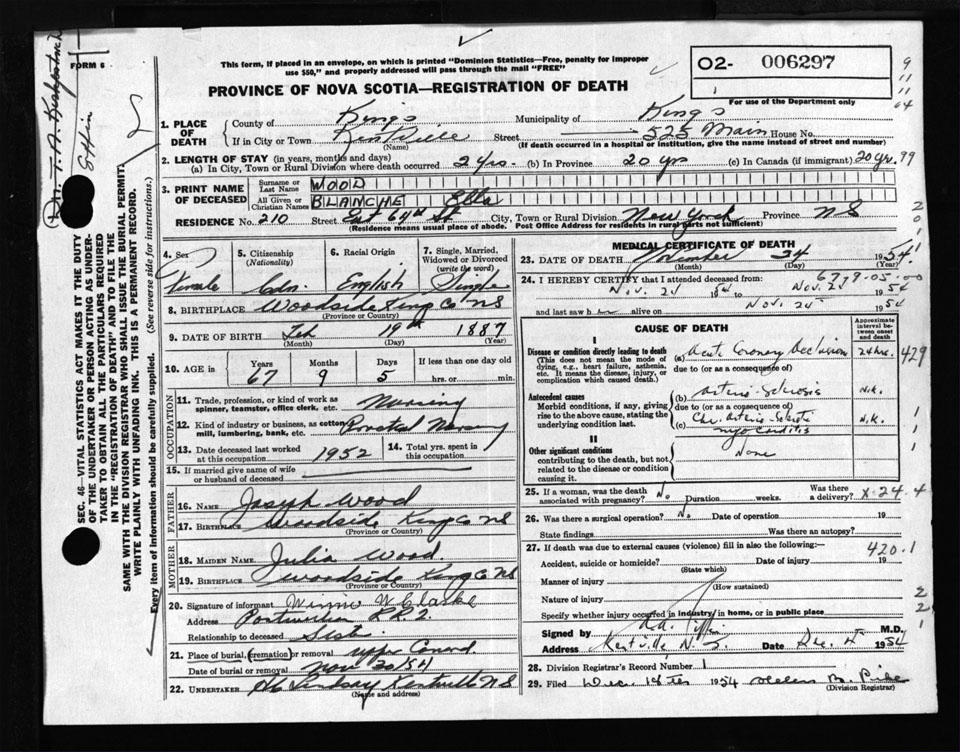 FORM 6
This form, if placed in an envelope, on which is printed "Dominion Statistics—Free, penalty for improper
use $50," and properly addressed will pass through the mail "FREE"
PROVINCE OF NOVA SCOTIA—REGISTRATION OF DEATH
O2- 006297
For use of the Department only
1. PLACE OF DEATH
County of Kings Municipality of Kings
If in City or Town Street 525 Main House No.
(Name) (If death occurred in a hospital or institution, give the name instead of street and number)
2. LENGTH OF STAY (in years, months and days)
(a) In City, Town or Rural Division where death occurred 2 yrs. (b) In Province 20 yrs (c) In Canada (if immigrant) 20 yr.
3. PRINT NAME OF DECEASED
Surname or Last Name WOOD
All Given or Christian Names BLANCHE Ella
RESIDENCE No. 210 Street East 64th St City, Town or Rural Division New York Province NS
(Residence means usual place of abode. Post Office Address for residents in rural parts not sufficient)
4. Sex Female
5. Citizenship (Nationality) Cdn.
6. Racial Origin English
7. Single, Married, Widowed or Divorced (write the word) Single
8. BIRTHPLACE Woodside King Co NS
(Province or Country)
9. DATE OF BIRTH Feb 19th 1887
(Month) (Day) (Year)
10. AGE in Years 67 Months 9 Days 5 If less than one day old hrs. or min.
OCCUPATION
11. Trade, profession, or kind of work as spinner, teamster, office clerk, etc. Nursing
12. Kind of industry or business, as cotton mill, lumbering, bank, etc. Nursing
13. Date deceased last worked at this occupation 1952
14. Total yrs. spent in this occupation
15. If married give name of wife or husband of deceased
FATHER
16. NAME Joseph Wood
17. BIRTHPLACE Woodside King Co NS
(Province or Country)
MOTHER
18. MAIDEN NAME Julia Wood.
19. BIRTHPLACE Woodside King Co NS
(Province or Country)
20. Signature of informant W Clarke
Address R.R. 2.
Relationship to deceased Sister
21. Place of burial, (cremation) or removal Upper Canard
Date of burial or removal Nov
22. UNDERTAKER Lindsay Kentville NS
(Name and address)
MEDICAL CERTIFICATE OF DEATH
23. DATE OF DEATH November 24 1954
(Month) (Day) (Year)
24. I HEREBY CERTIFY that I attended deceased from: 679.05.00
Nov. 1954 to Nov. 1954
and last saw h alive on Nov. 1954
CAUSE OF DEATH
Approximate interval between onset and death
I
Disease or condition directly leading to death (a) Acute Coronary Occlusion 24 hrs. 429
(This does not mean the mode of dying, e.g., heart failure, asthenia, etc. It means the disease, injury, or complication which caused death.)
due to (or as a consequence of)
Antecedent causes (b) Arterio-Sclerosis N.K.
Morbid conditions, if any, giving rise to the above cause, stating the underlying condition last.
due to (or as a consequence of)
(c) N.K.
II
Other significant conditions None
contributing to the death, but not related to the disease or condition causing it.
25. If a woman, was the death associated with pregnancy? No Duration weeks. Was there a delivery? X-24.4
26. Was there a surgical operation? No Date of operation 19
State findings Was there an autopsy?
27. If death was due to external causes (violence) fill in also the following:— 420.1
Accident, suicide or homicide? Date of injury 19
(State which)
Manner of injury
(How sustained)
Nature of injury
Specify whether injury occurred in industry, in home, or in public place
Signed by M.D.
Address Kentville N.S. Date Dec. 1954
28. Division Registrar's Record Number 1
29. Filed Dec. 1954 Helen
(Division Registrar)
SEC. 46—VITAL STATISTICS ACT MAKES IT THE DUTY
OF THE UNDERTAKER OR PERSON ACTING AS UNDER-
TAKER TO OBTAIN ALL THE PARTICULARS REQUIRED
IN THE "REGISTRATION OF DEATH" AND TO FILE THE
SAME WITH THE DIVISION REGISTRAR WHO SHALL ISSUE THE BURIAL PERMIT.
WRITE PLAINLY WITH UNFADING INK. THIS IS A PERMANENT RECORD.
Every item of information should be carefully supplied. (See reverse side for instructions.)